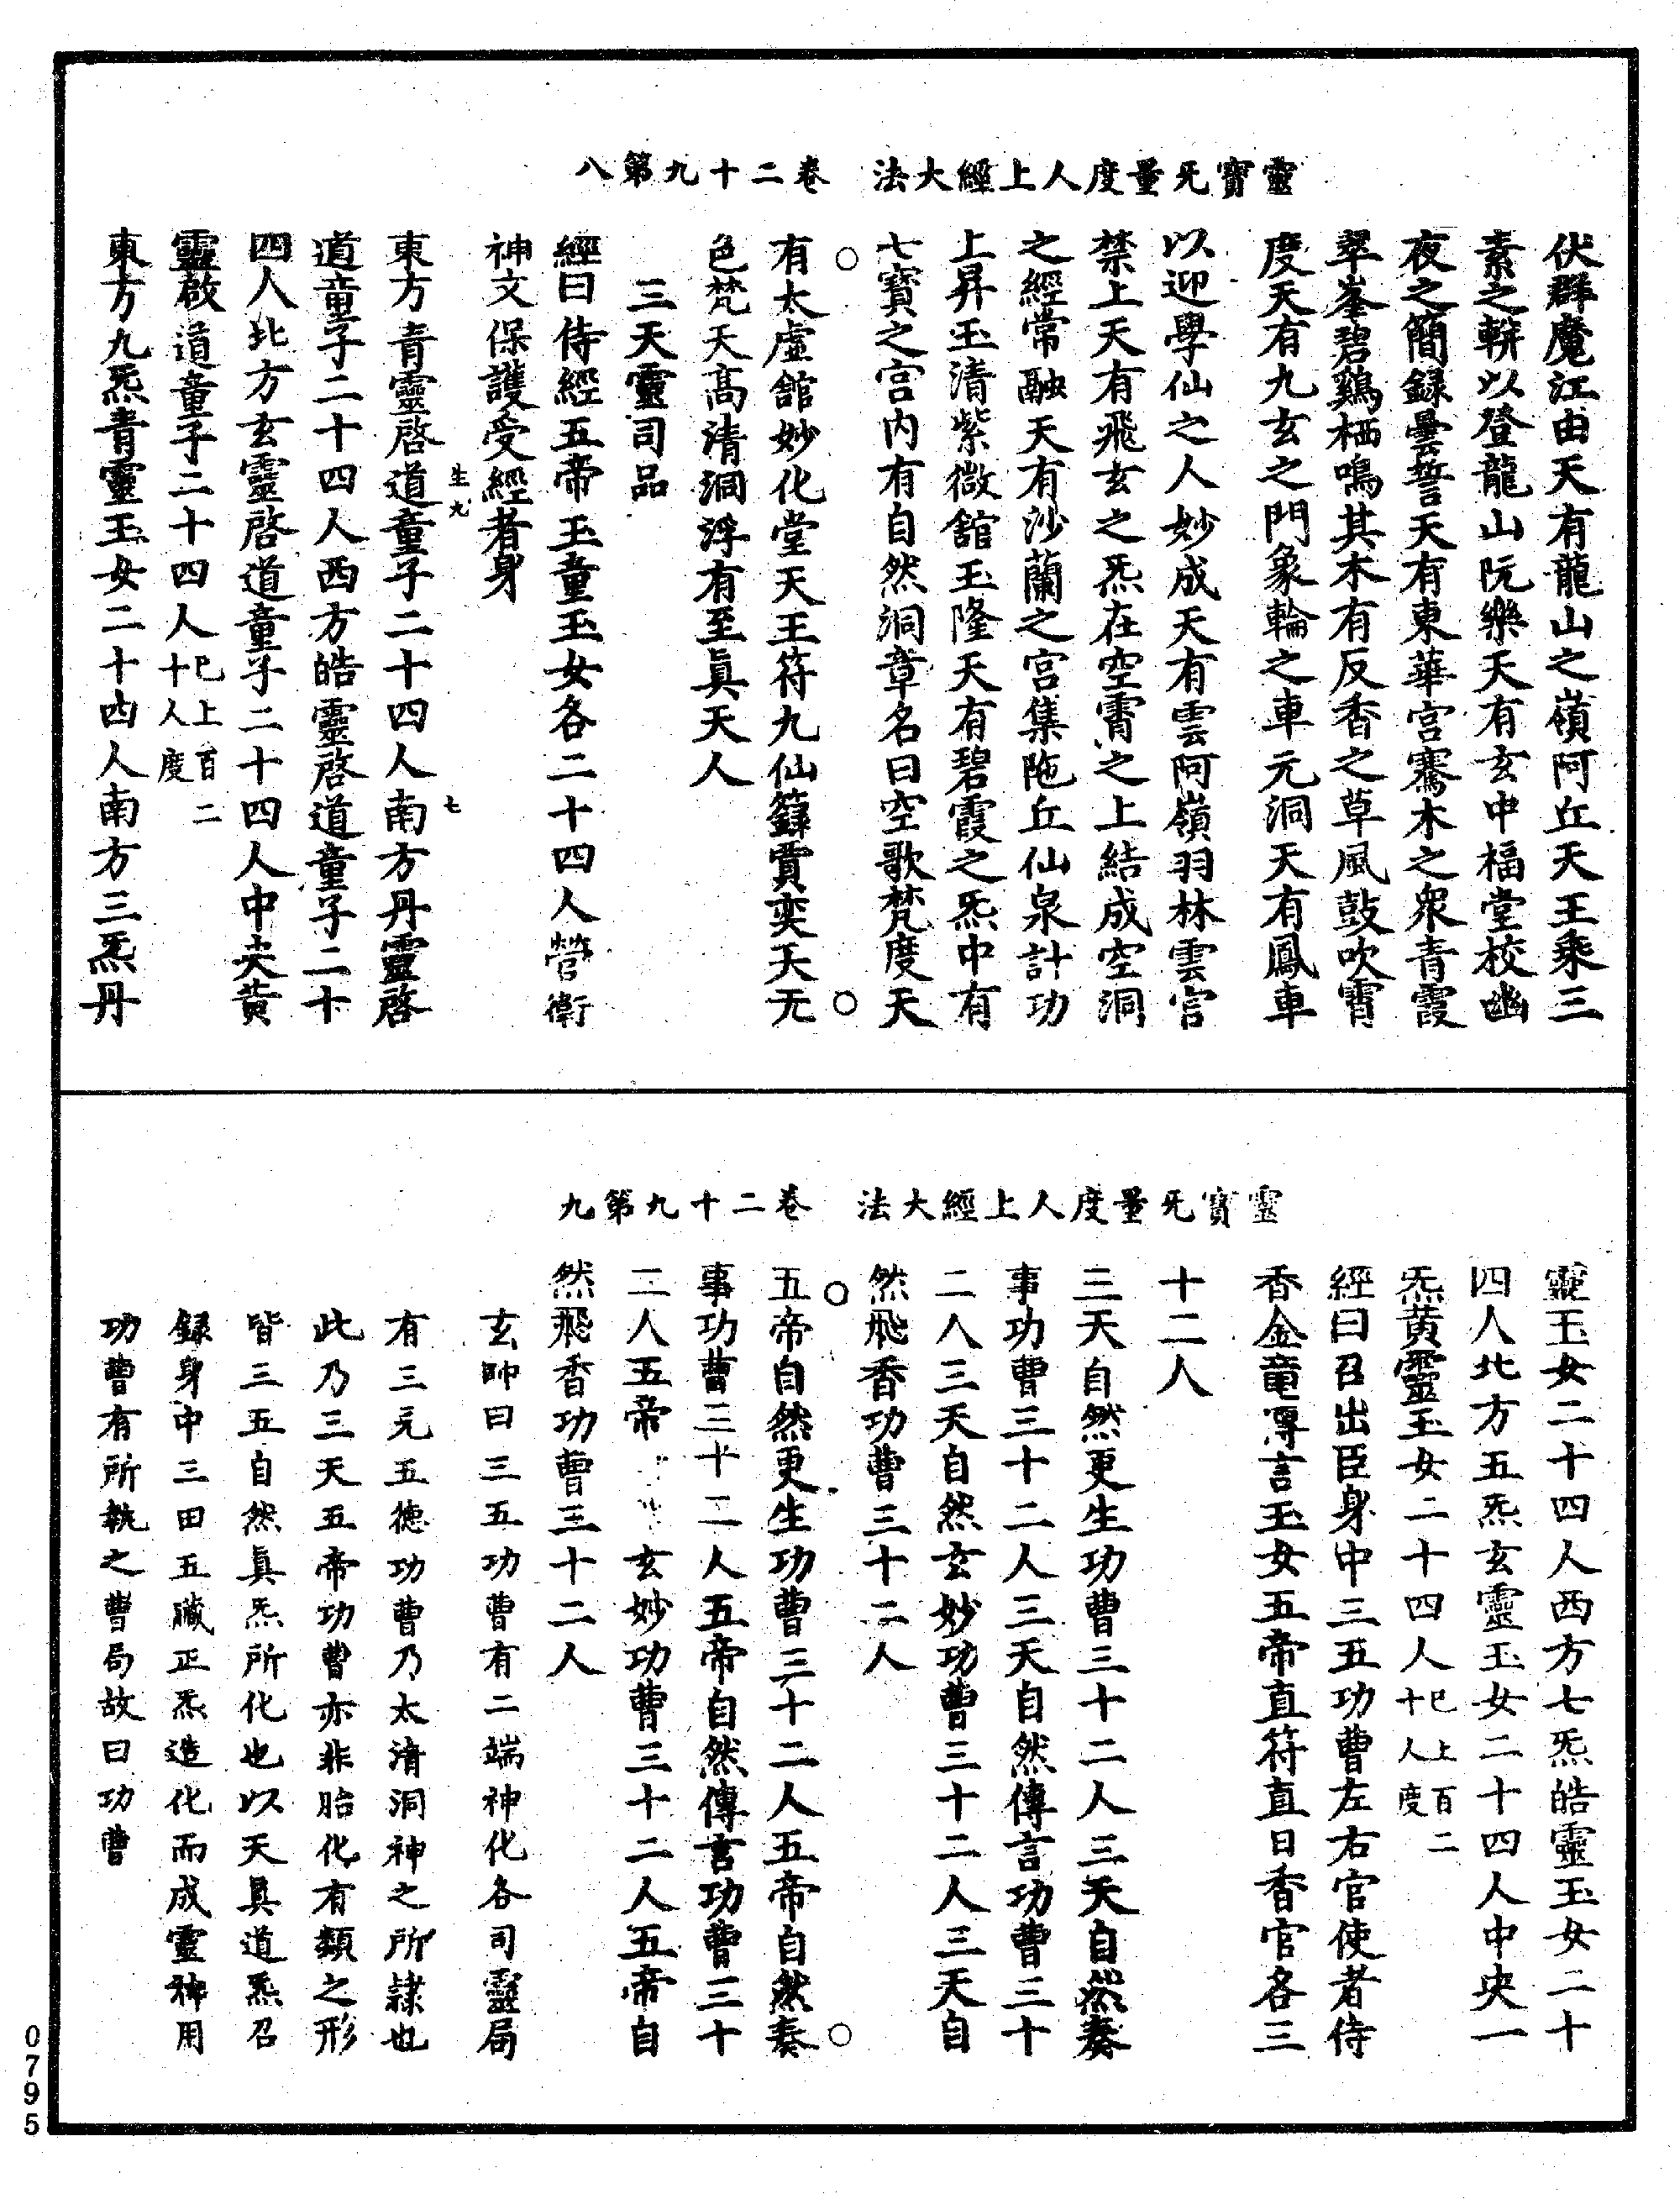 靈寶旡量度人上經大法 卷二十九第八
伏群魔江由天有龍山之嶺阿丘天王乘三
素之軿以登龍山阮樂天有玄中福堂校幽
夜之簡録曇誓天有東華宮騫木之衆青霞
翠峯碧鷄栖鳴其木有反香之草風鼓吹霄
度天有九玄之門象輪之車元洞天有鳳車
以迎學仙之人妙成天有雲阿嶺羽林雲宮
禁上天有飛玄之炁在空霄之上結成空洞
之經常融天有沙蘭之宮集陁丘仙泉計功
上昇玉清紫微舘玉隆天有碧霞之炁中有
七寶之宮内有自然洞章名曰空歌梵度天
有太虛舘妙化堂天王符九仙籙賈奕天无
色梵天高清洞浮有至眞天人
三天靈司品
經曰侍經五帝玉童玉女各二十四人營衛
神文保護受經者身
生九 七
東方青靈啓道童子二十四人南方丹靈啓
道童子二十四人西方皓靈啓道童子二十
四人北方玄靈啓道童子二十四人中央黄
靈啟道童子二十四人已上百二十人度
東方九炁青靈玉女二十四人南方三炁丹
靈寶旡量度人上經大法 卷二十九第九
靈玉女二十四人西方七炁皓靈玉女二十
四人北方五炁玄靈玉女二十四人中央一
炁黄靈玉女二十四人已上百二十人度
經曰召出臣身中三五功曹左右官使者侍
香金童傳言玉女五帝直符直日香官各三
十二人
三天自然更生功曹三十二人三天自然奏
事功曹三十二人三天自然傳言功曹三十
二人三天自然玄妙功曹三十二人三天自
然飛香功曹三十二人
五帝自然更生功曹三十二人五帝自然奏
事功曹三十二人五帝自然傳言功曹三十
二人五帝 玄妙功曹三十二人五帝自
然飛香功曹三十二人
玄帥曰三五功曹有二端神化各司靈局
有三元五德功曹乃太清洞神之所隷也
此乃三天五帝功曹亦非胎化有類之形
皆三五自然眞炁所化也以天具道炁召
録身中三田五臟正炁造化而成靈神用
功曹有所執之曹局故曰功曹
0795